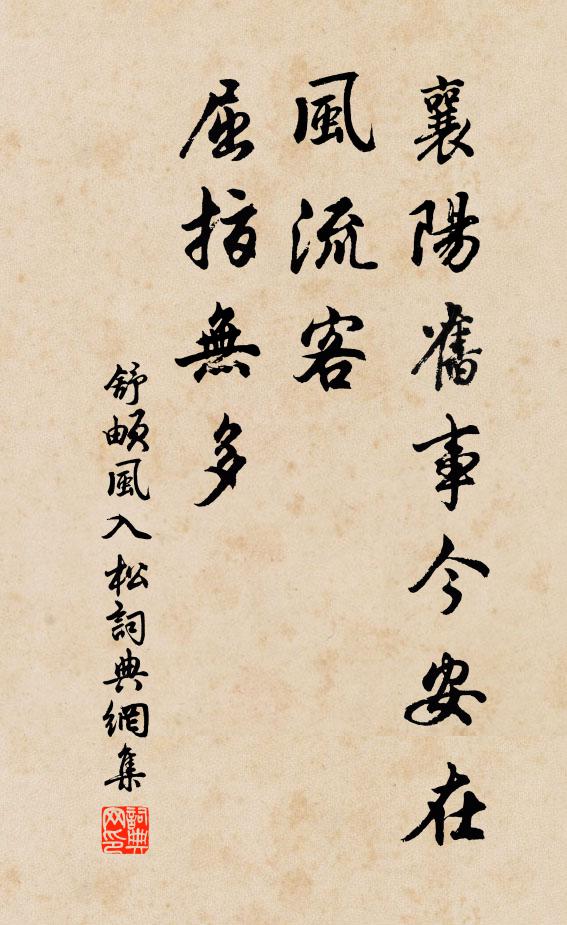 襄陽舊事今安在
風流客
屈指無多
舒頔風入松詞典網集
詞典
网印